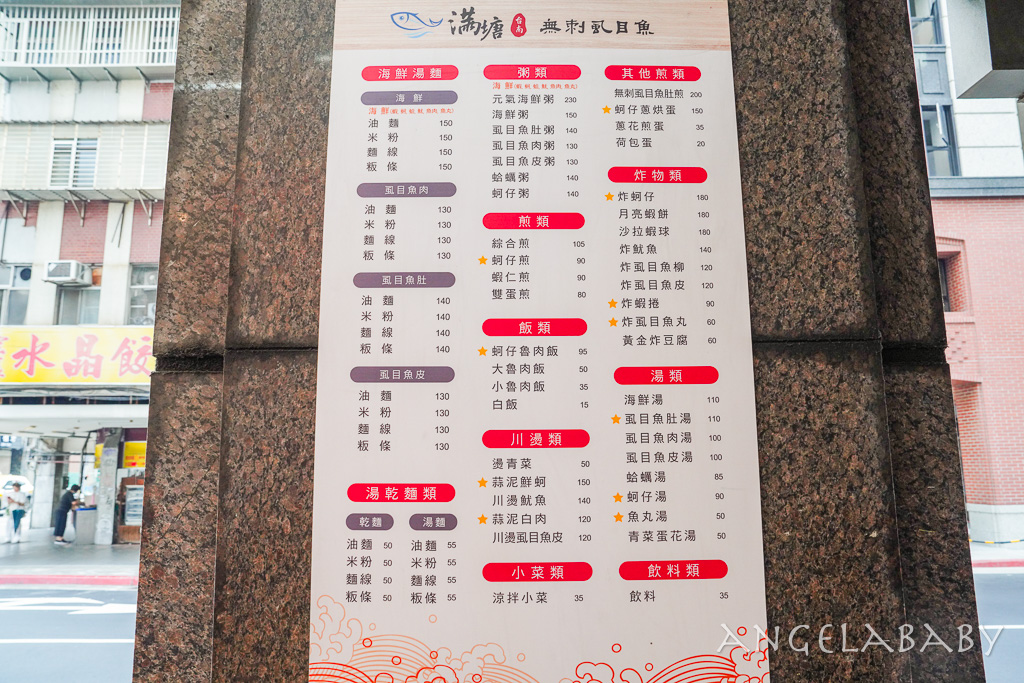 滿塘 台南 無刺虱目魚
海鮮湯麵
海鮮
油麵 150
米粉 150
麵線 150
粄條 150
虱目魚肉
油麵 130
米粉 130
麵線 130
粄條 130
虱目魚肚
油麵 140
米粉 140
麵線 140
粄條 140
虱目魚皮
油麵 130
米粉 130
麵線 130
粄條 130
湯乾麵類
乾麵
油麵 50
米粉 50
麵線 50
粄條 50
湯麵
油麵 55
米粉 55
麵線 55
粄條 55
粥類
元氣海鮮粥 230
海鮮粥 150
虱目魚肚粥 140
虱目魚肉粥 130
虱目魚皮粥 130
蛤蠣粥 140
蚵仔粥 140
煎類
綜合煎 105
蚵仔煎 90
蝦仁煎 90
雙蛋煎 80
飯類
蚵仔魯肉飯 95
大魯肉飯 50
小魯肉飯 35
白飯 15
川燙類
燙青菜 50
蒜泥鮮蚵 150
川燙魷魚 140
蒜泥白肉 120
川燙虱目魚皮 120
小菜類
涼拌小菜 35
其他煎類
無刺虱目魚肚煎 200
蚵仔蔥烘蛋 150
蔥花煎蛋 35
荷包蛋 20
炸物類
炸蚵仔 180
月亮蝦餅 180
沙拉蝦球 180
炸魷魚 140
炸虱目魚柳 120
炸虱目魚皮 120
炸蝦捲 90
炸虱目魚丸 60
黃金炸豆腐 60
湯類
海鮮湯 110
虱目魚肚湯 110
虱目魚肉湯 100
虱目魚皮湯 100
蛤蠣湯 85
蚵仔湯 90
魚丸湯 50
青菜蛋花湯 50
飲料類
飲料 35
水晶餃
ANGELABABY